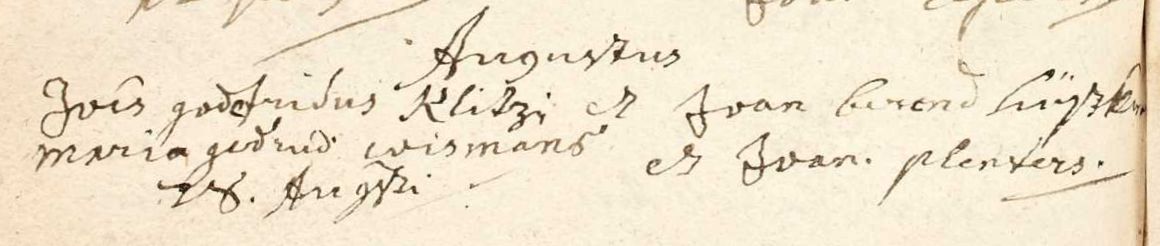 Augustus
Jois godefridus Klitzi et Joan berend
maria gedrud wismans et Joan. plenters.
28. Augsti